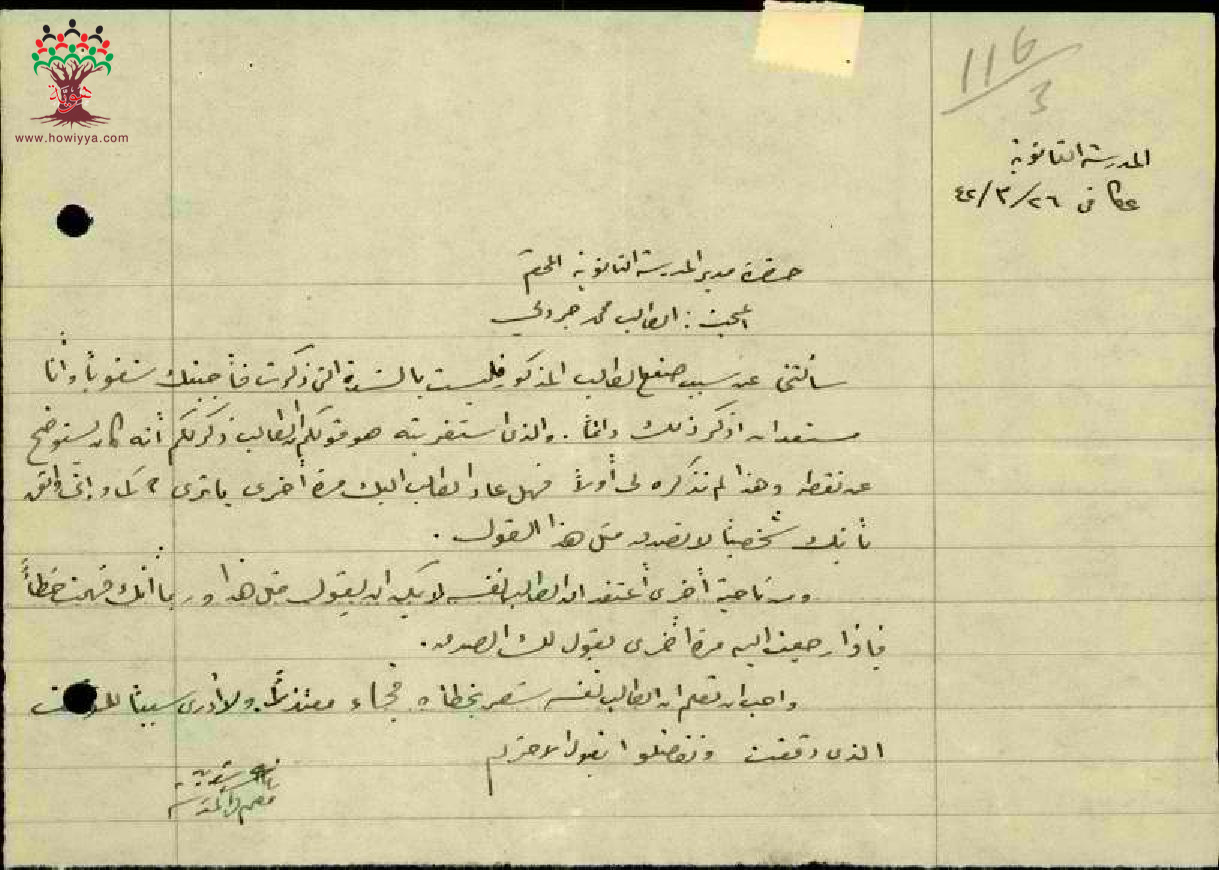 هوية
www.howiyya.com
116
3
المدرسة الثانوية
عكا في ٢٦/٣/٤٢
حضرة مدير المدرسة الثانوية المحترم
المبحث : الطالب محمد
سألتني عن سبب صفع الطالب المذكور فليست بالشدة التي ذكرت فأجبتك شفوياً وأنا
مستعد ان اذكر ذلك دائماً . والذي استغربته هو قولكم ان الطالب ذكر لكم أنه كان يستوضح
عن نقطة وهذا لم تذكره لي أولاً فهل عاد الطالب اليك مرة أخرى يا ترى ؟ واني واثق
بأنك شخصياً لا تصدق مثل هذا القول .
ومن ناحية أخرى أعتقد ان الطالب نفسه لا يمكن ان يقول مثل هذا وربما أنك فهمت خطأً
فاذا رجعت اليه مرة أخرى يقول لك الصدق .
واحب ان تعلم ان الطالب نفسه شعر بخطأه فجاء معتذراً ولا أدري سبباً
الذي وقفت وتفضلوا بقبول الاحترام